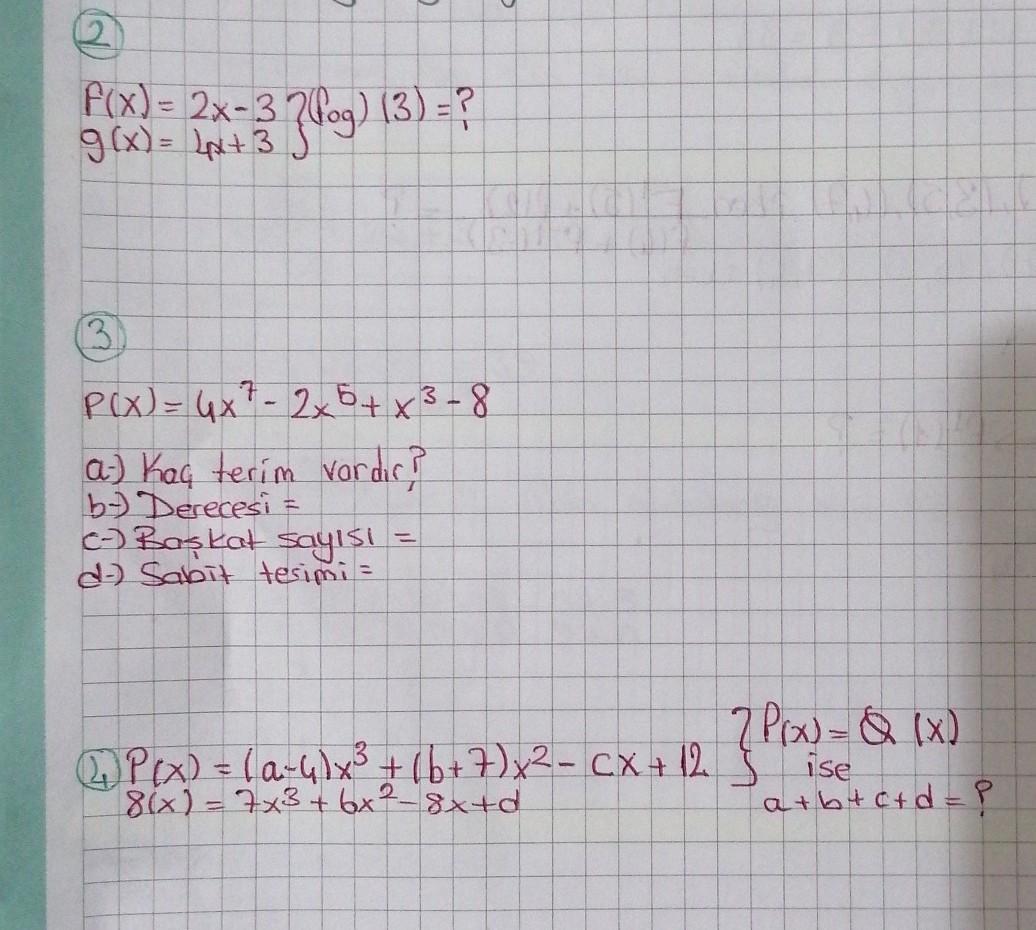 2
f(x) = 2x - 3 } (fog) (3) = ?
g(x) = 4x + 3
3
P(x) = 4x⁷ - 2x⁵ + x³ - 8
a-) Kaç terim vardır?
b-) Derecesi =
c-) Başkat sayısı =
d-) Sabit tesimi =
4 P(x) = (a-4)x³ + (b+7)x² - cx + 12 } P(x) = Q (x)
ise
8(x) = 7x³ + 6x² - 8x + d
a + b + c + d = ?